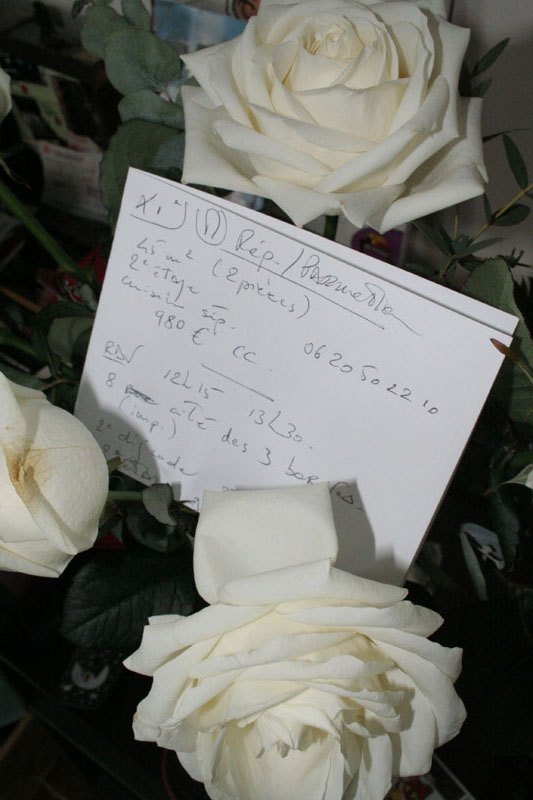 XI (11) Rép. / Parmentier
45 m² (2 pièces)
2e étage
cuisine sép.
980 € CC. 06 20 50 22 10
RDV 12h15 13h30.
8 cité des 3 bornes.
(imp.)
2e